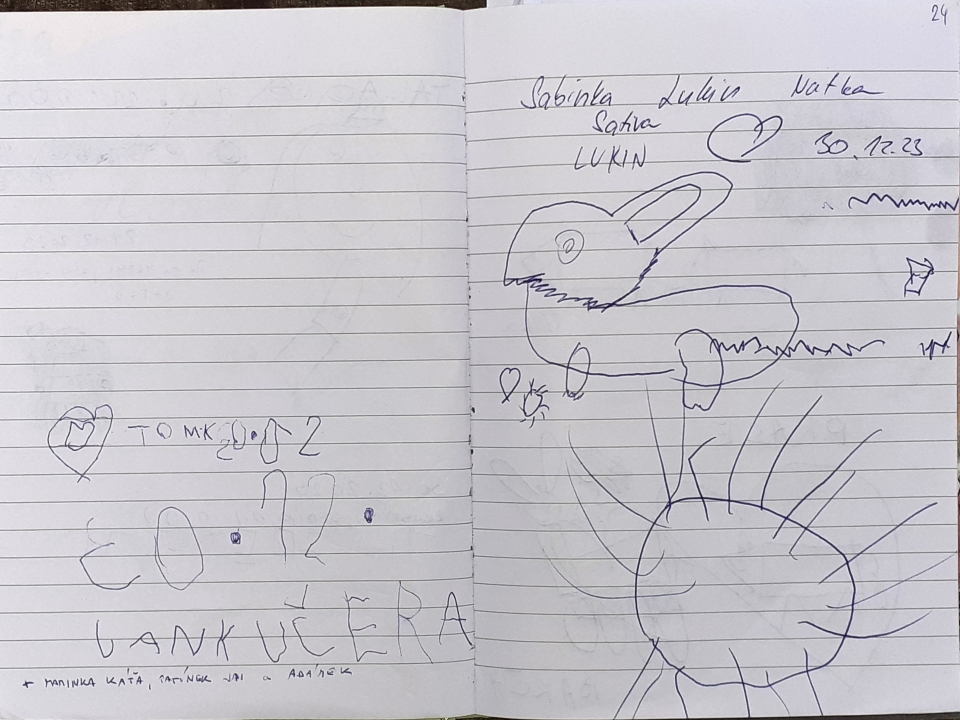 TOMK 20.12
30.12.
VAN KUČERA
+ MAMINKA KÁŤA, TATÍNEK JAI a ADÁMEK
24
Sabinka Lukin Natka
Sativa
LUKIN
30.12.23